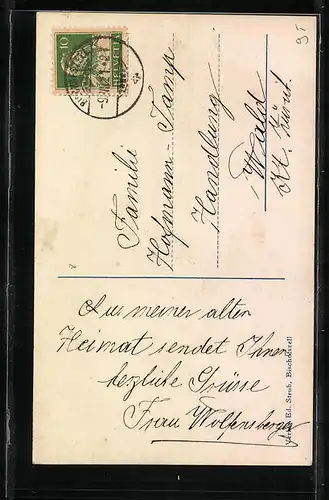 95
10
HELVETIA
Familie
Hofmann-Tamp
Handlung
Wald
Kt. Zürich
Aus meiner alten
Heimat sendet Ihnen
herzliche Grüsse
Frau Wolfensberger
Verlag Ed. Straub, Bischofszell